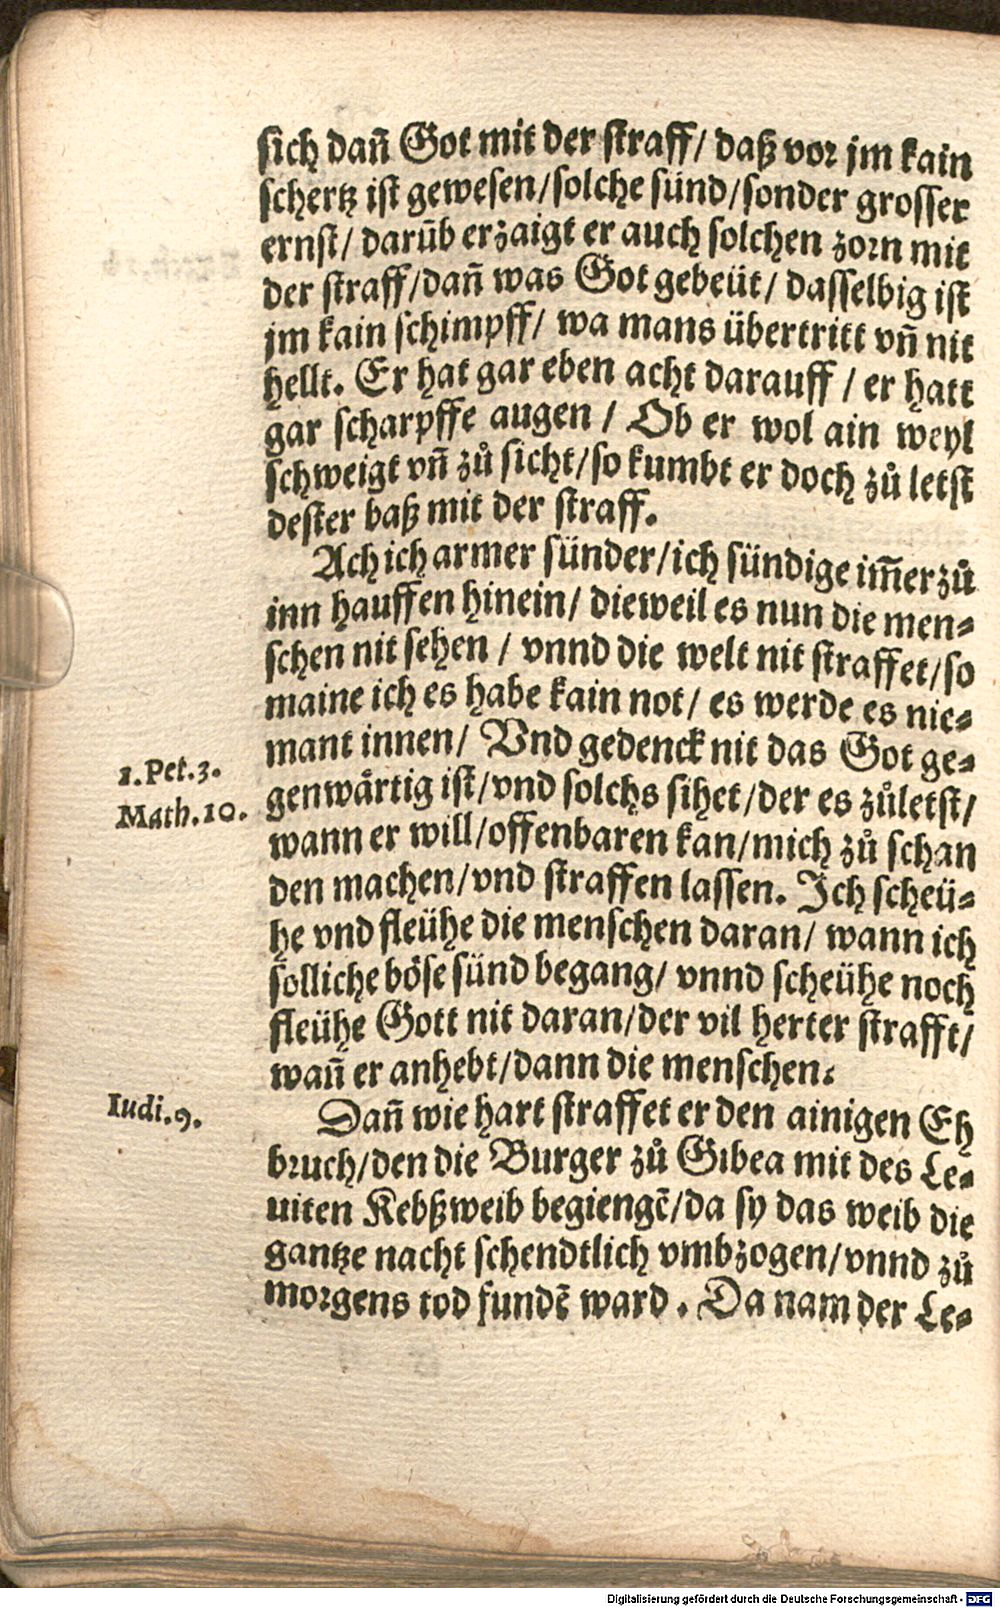 sich dañ Got mit der straff/ daß vor jm kain
schertz ist gewesen/solche sünd/sonder grosser
ernst/ darūb erzaigt er auch solchen zorn mit
der straff/dañ was Got gebeüt/ dasselbig ist
jm kain schimpff/ wa mans übertritt vñ nit
hellt. Er hat gar eben acht darauff / er hatt
gar scharpffe augen / Ob er wol ain weyl
schweigt vñ zů sicht/so kumbt er doch zů letst
dester baß mit der straff.
Ach ich armer sünder/ich sündige im̃er zů
inn hauffen hinein/ dieweil es nun die men⸗
schen nit sehen / vnnd die welt nit straffet/so
maine ich es habe kain not/ es werde es nie⸗
mant innen/ Vnd gedenck nit das Got ge⸗
1.Pet.3.
genwårtig ist/vnd solchs sihet/der es zůletst/
Math.10.
wann er will/offenbaren kan/mich zů schan
den machen/vnd straffen lassen. Ich scheü⸗
he vnd fleühe die menschen daran/ wann ich
solliche böse sünd begang/ vnnd scheühe noch
fleühe Gott nit daran/der vil herter strafft/
wañ er anhebt/dann die menschen.
Iudi.9.
Dañ wie hart straffet er den ainigen Eh
bruch/den die Burger zů Gibea mit des Le⸗
uiten Kebßweib begiengē/da sy das weib die
gantze nacht schendtlich vmbzogen/vnnd zů
morgens tod fundē ward . Da nam der Le⸗
Digitalisierung gefördert durch die Deutsche Forschungsgemeinschaft - DFG